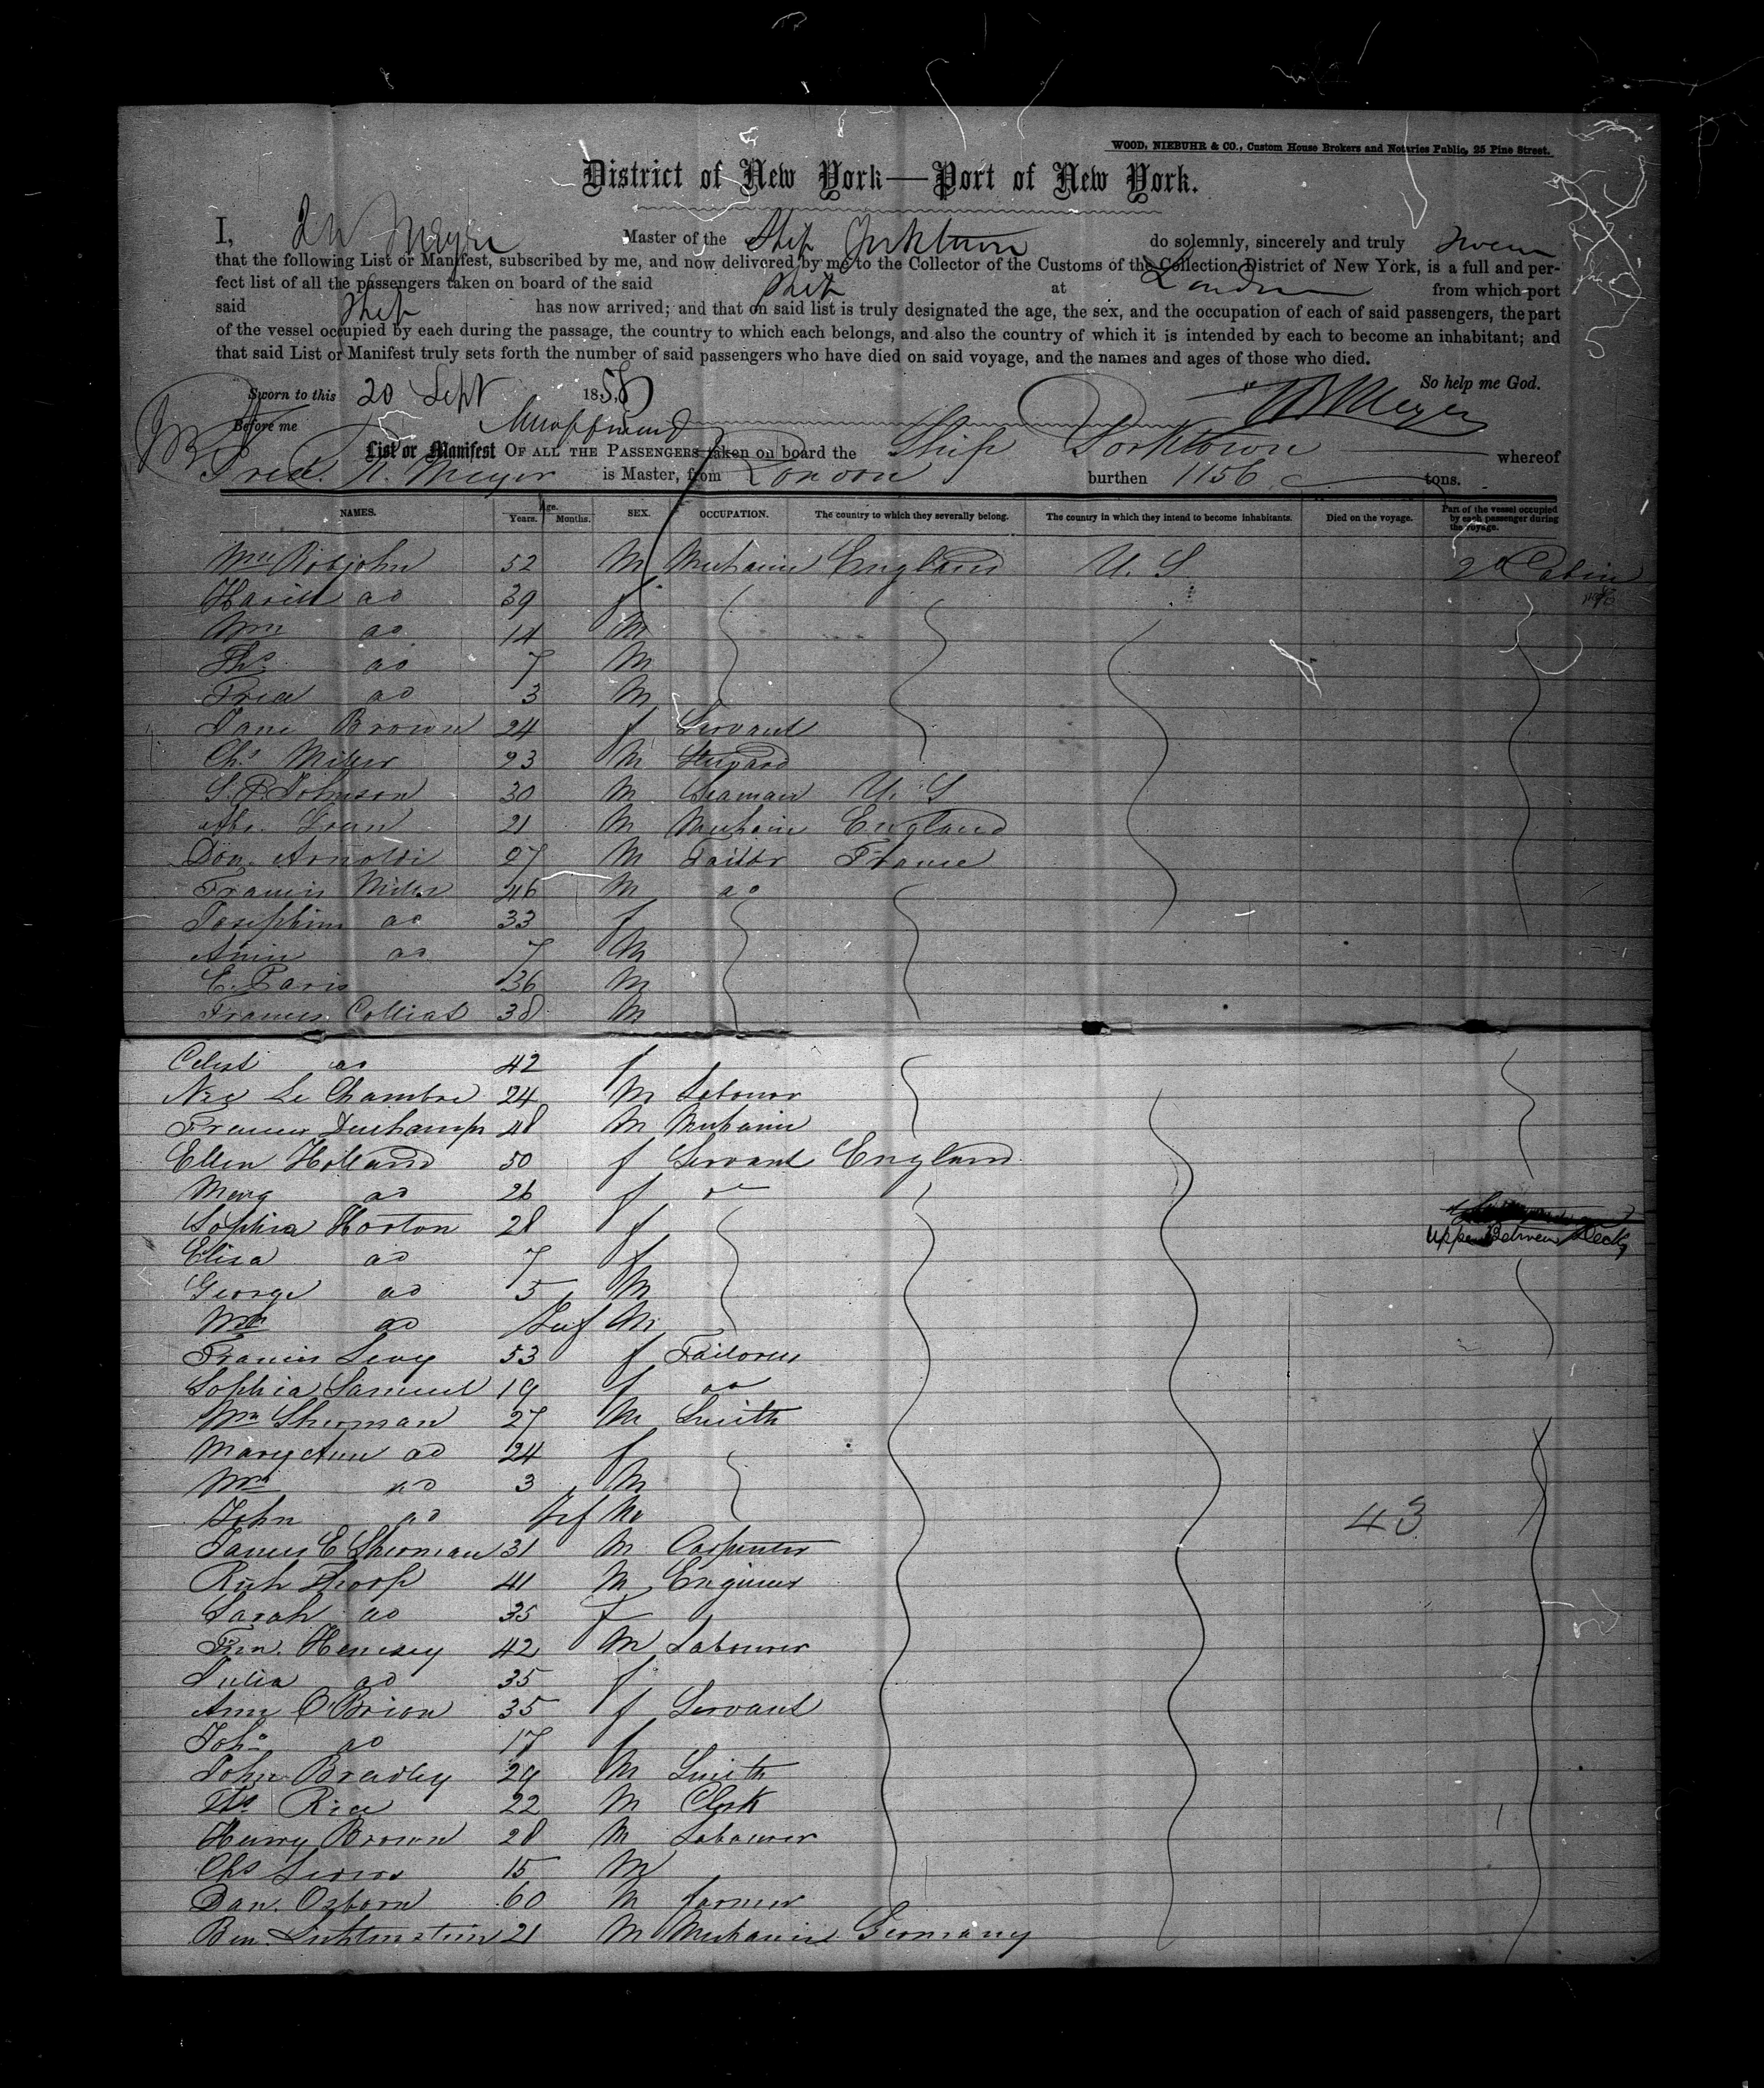 WOOD, NIEBUHR & CO., Custom House Brokers and Notaries Public, 25 Pine Street.
District of New York—Port of New York.
I, Meyer Master of the Ship Yorktown do solemnly, sincerely and truly Swear
that the following List or Manifest, subscribed by me, and now delivered by me to the Collector of the Customs of the Collection District of New York, is a full and per-
fect list of all the passengers taken on board of the said Ship at London from which port
said Ship has now arrived; and that on said list is truly designated the age, the sex, and the occupation of each of said passengers, the part
of the vessel occupied by each during the passage, the country to which each belongs, and also the country of which it is intended by each to become an inhabitant; and
that said List or Manifest truly sets forth the number of said passengers who have died on said voyage, and the names and ages of those who died.
So help me God.
Sworn to this 20 Sept 1858 Meyer
Before me
List or Manifest OF ALL THE PASSENGERS taken on board the Ship Yorktown whereof
Fred. W. Meyer is Master, from London burthen 1156 tons.
NAMES. Age. Years. Months. SEX. OCCUPATION. The country to which they severally belong. The country in which they intend to become inhabitants. Died on the voyage. Part of the vessel occupied by each passenger during the voyage.
Wm Robjohn 52 M Mechanic England U. S 2d Cabin
Hariet do 39 f
Wm do 14 M
Ths do 7 M
Fred do 3 M
Jane Brown 24 f Servant
Chs Miller 23 M
S. P. Johnson 30 M Seaman U. S
Abr. 21 M Mechanic England
Don. Arnoldi 27 M Tailor France
Francis Miller 46 M do
Josephine do 33 f
do 7 M
E. Paris 36 M
Francis Colliat 38 M
Celest do 42 f
Le Chambre 24 M Labouor
Francis Duchamps 48 M Mechanic
Ellen Holland 50 f Servant England
Mary do 26 f do
Sophia Horton 28 f
Upper Between Decks
Eliza do 7 f
George do 5 M
Wm do Inf M
Francis Levy 53 f Tailoress
Sophia Samuel 19 f do
Wm Sherman 27 M Smith
Mary Ann do 24 f
Wm do 3 M
John do Inf M 43
James E Sherman 31 M Carpenter
Rich Thorp 41 M Engineer
Sarah do 35 f
Hensey 42 M Labourer
Julia do 35 f
Ann O'Brion 35 f Servant
Joha do 17 f
John Bradley 29 M Smith
Ths Rice 22 M Clerk
Henry Brown 28 M Labourer
Chs 15 M
Dan. Ozborn 60 M farmer
Ben. Lichtenstein 21 M Mechanic Germany